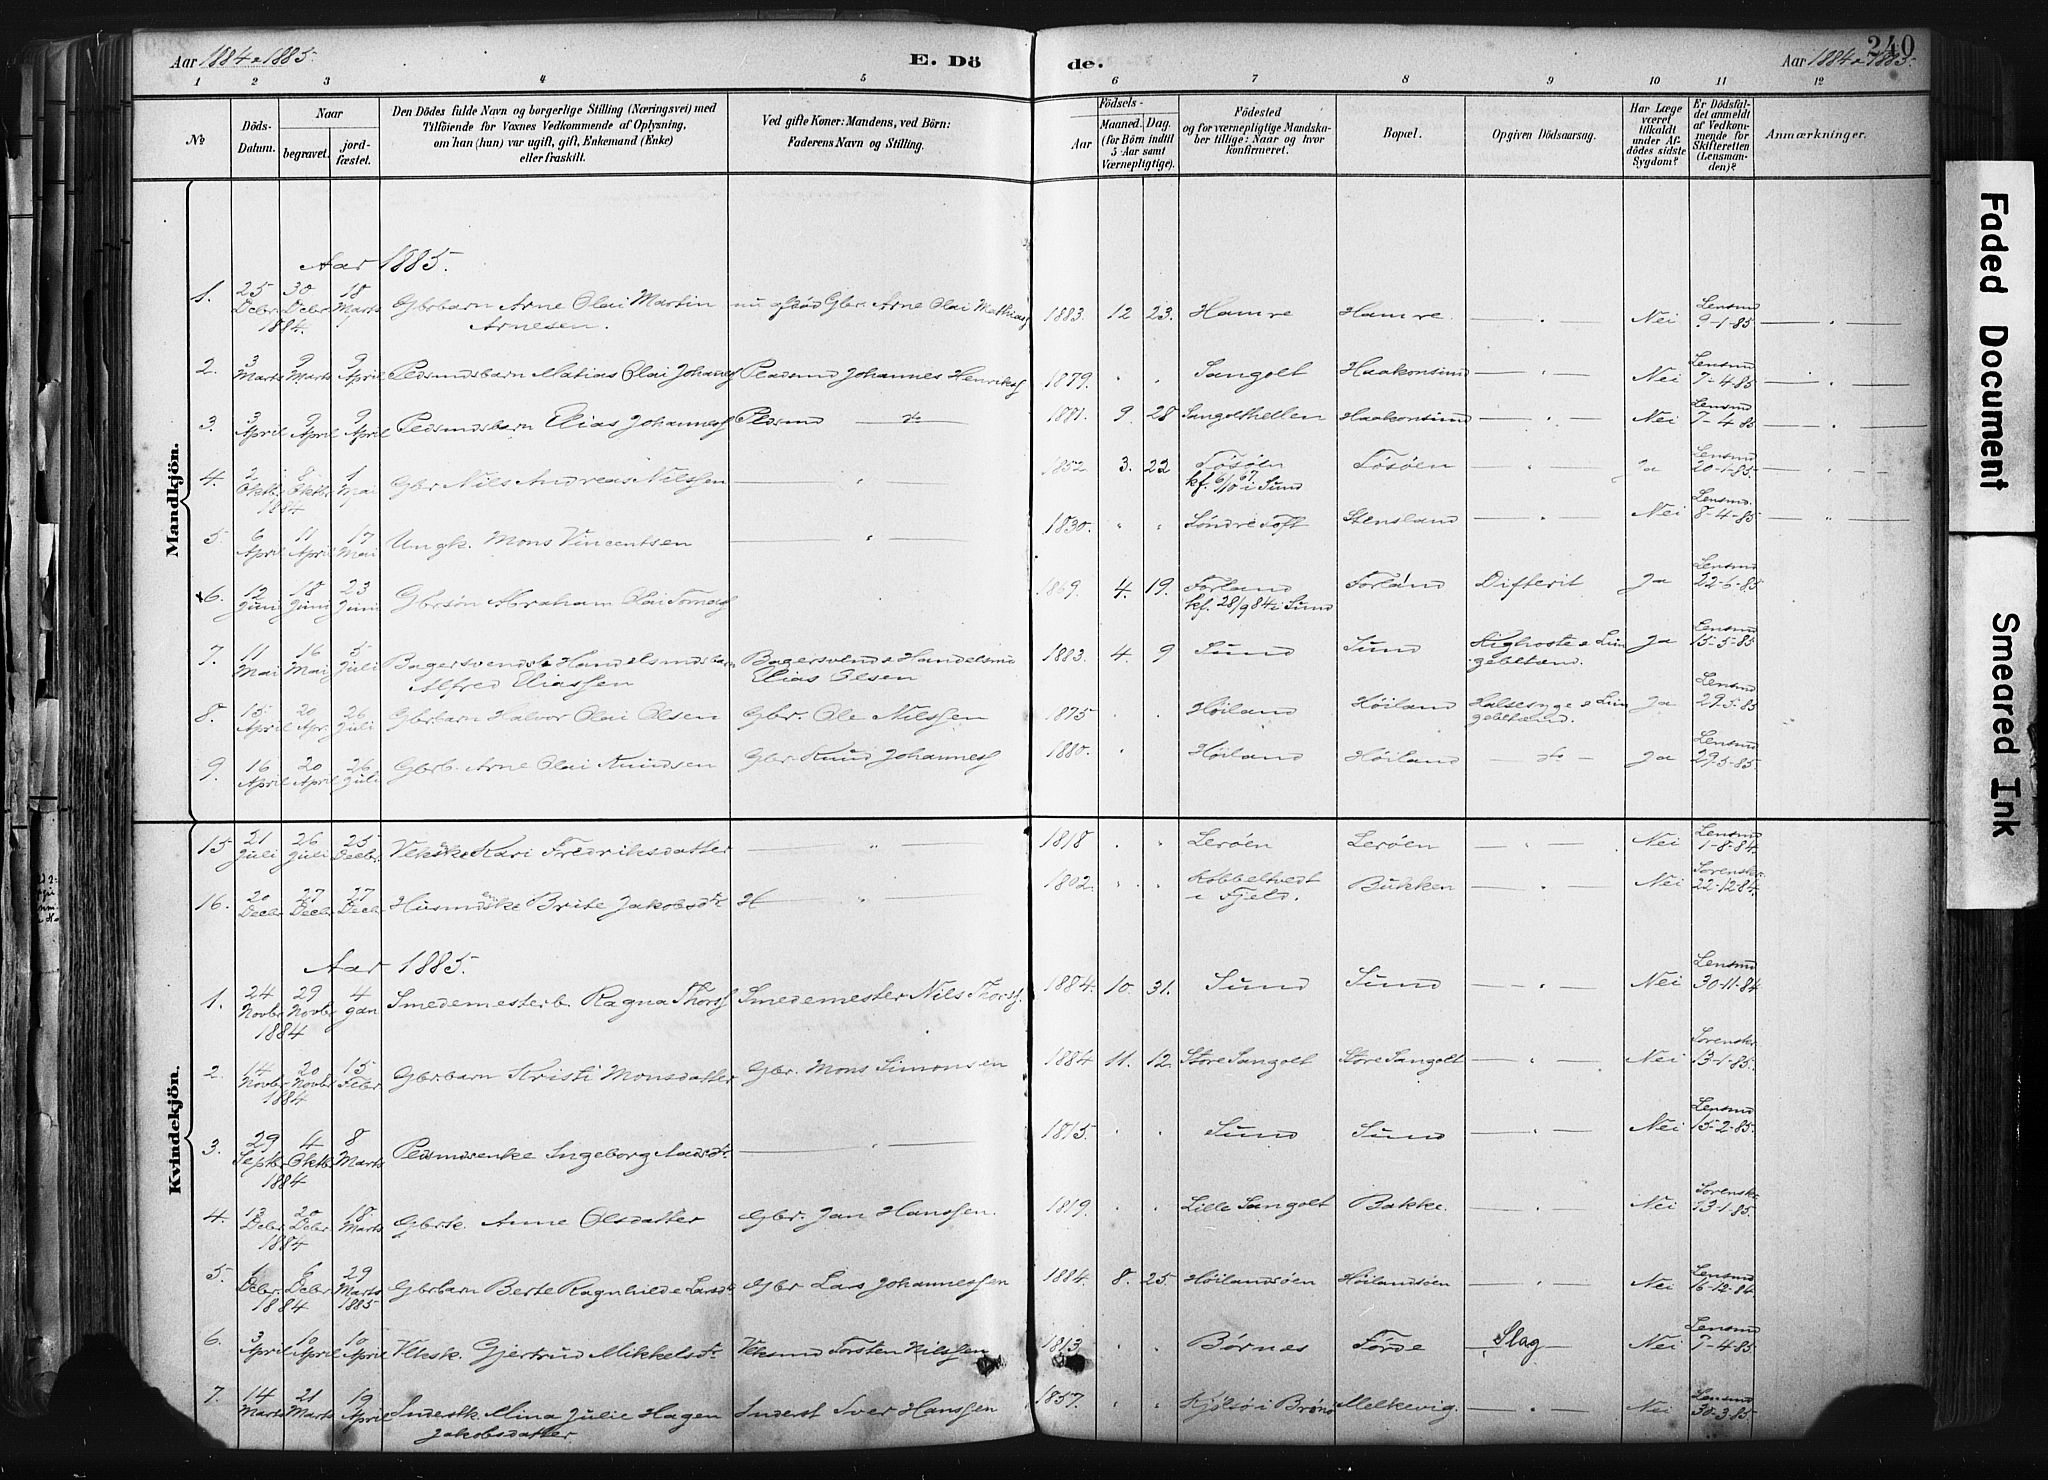 240
Aar 1884 & 1885.
E. Dö
de.
Aar 1884 & 1885.
1 2 3 4 5 6 7 8 9 10 11 12
No
Döds-Datum.
Naar
begravet.
jord-fæstet.
Den Dödes fulde Navn og borgerlige Stilling (Næringsvei) med
Tilföiende for Voxnes Vedkommende af Oplysning,
om han (hun) var ugift, gift, Enkemand (Enke)
eller fraskilt.
Ved gifte Koner: Mandens, ved Börn:
Faderens Navn og Stilling.
Födsels-
Aar
Maaned. Dag.
(for Börn indtil
5 Aar samt
Værnepligtige).
Födested
og for værnepligtige Mandska-
ber tillige: Naar og hvor
konfirmeret.
Bopæl.
Opgiven Dödsaarsag.
Har Læge
været
tilkaldt
under Af-
dödes sidste
Sygdom?
Er Dödsfal-
det anmeldt
af Vedkom-
mende for
Skifteretten
(Lensman-
den)?
Anmærkninger.
Mandkjön.
Aar 1885.
1. 25 Debr. 1884. 30 Debr. 18 Marts Gbrbarn Arne Olai Martin Arnesen. nu afdød Gbr. Arne Olai Mathias 1883. 12 23. Hamre Hamre. — " — Nei Lensmd 9-1-85 — " —
2. 3 Marts 9 Marts 9 April Pladsmdsbarn Matias Olai Johannes Pladsmd Johannes Henriks 1879. " " Sangolt Haakonsund — " — Nei Lensmd 7-4-85 — " —
3. 3 April 9 April 9 April Pldsmdsbarn Elias Johannes Pldsmd — do — 1881. 9. 28 Sangolthellen Haakonsund — " — Nei Lensmd 7-4-85 — " —
4. 2 Oktb. 8 Oktb. 1884 1 Mai Gbr. Nils Andreas Nilssen — " — 1852 3. 22 Tøsøen kf. 6/10 67 i Sund Tøsøen " Ja Lensmd 20-1-85
5. 6 April 11 April 17 Mai Ungk. Mons Vincentsen — " — 1830. " " Søndre Toft Stensland — " — Nei Lensmd. 8-4-85 — " —
6. 12 Juni 18 Juni 23 Juni Gbrsøn Abraham Olai Tomas 1869. 4. 19. Forland kf. 28/9 84 i Sund Forland Difterit Ja Lensmd 22-6-85
7. 11 Mai 16 Mai 5 Juli Bagersvends & Handelsmdsbarn Alfred Eliassen Bagersvend & Handelsmd Elias Olsen 1883. 4. 9 Sund Sund Kighoste & Lungebetænd. Ja Lensmd 15-5-85
8. 15 April 20 Apr. 26 Juli Gbrbarn Halvor Olai Olsen Gbr. Ole Nilssen 1875 " " Høiland Høiland Halsesyge & Lungebetænd. Ja Lensmd 29-5-85
9. 16 April 20 April 26 Juli Gbrb. Arne Olai Knudsen Gbr. Knud Johannes 1880. " Høiland Høiland — do — Ja Lensmd 29-5-85
Kvindekjön.
15 21 Juli 26 Juli 25 Decbr. Kari Fredriksdatter — " — 1818 " " Lerøen Lerøen — " — Nei Lensmd 1-8-84.
16. 20 Decbr. 27 Decbr. 27 Decbr. Husmdske Brite Jakobsdtr H — " — 1802. " " Kobbeltvedt i Fjeld. Bukken — " — Nei Sorenskr. 22-12-84.
Aar 1885.
1. 24 Novbr. 29 Novbr. 1884 4 Jan Smedemesterb. Ragna Thors Smedemester Nils Thors. 1884. 10. 31. Sund Sund — " — Nei Lensmd 30-11-84
2. 14 Novbr. 20 Novbr. 1884 15 Febr Gbrbarn Kristi Monsdatter Gbr. Mons Simonsen 1884 11. 12. Store Sangolt Store Sangolt — " — Nei Sorenskr. 13-1-85.
3. 29 Septbr. 4 Oktb. 1884 8 Marts Pldsmdsenke Ingeborg Aadsdtr. — " — 1815. " " Sund Sund — " — Nei Lensmd 15-2-85.
4. 13 Debr. 20 Debr. 1884 18. Marts Gbrk. Anne Olsdatter Gbr. Jan Hanssen. 1819. " " Lille Sangolt Bakke. — " — Nei Sorenskr. 13-1-85.
5. 1 Debr. 6 Debr. 1884 29 Marts 1885 Gbrbarn Berte Ragnhilde Larsdt Gbr Lars Johannessen 1884. 8. 25. Høilandsøen Høilandsøen — " — Nei Lensmd 16-12-84.
6. 3 April 10 April 10 April Gjertrud Mikkelsdtr. Torsten Nilssen 1813. " " Børnes Førde Slag Nei Lensmd 7-4-85
7. 14 Marts 21 Marts 19 April Inderstk. Mina Julie Hagen Jakobsdatter. Inderst Iver Hanssen 1857. " " i Brønø Melkevig. — " — Nei Lensmd 30-3-85
Faded Document
Smeared Ink